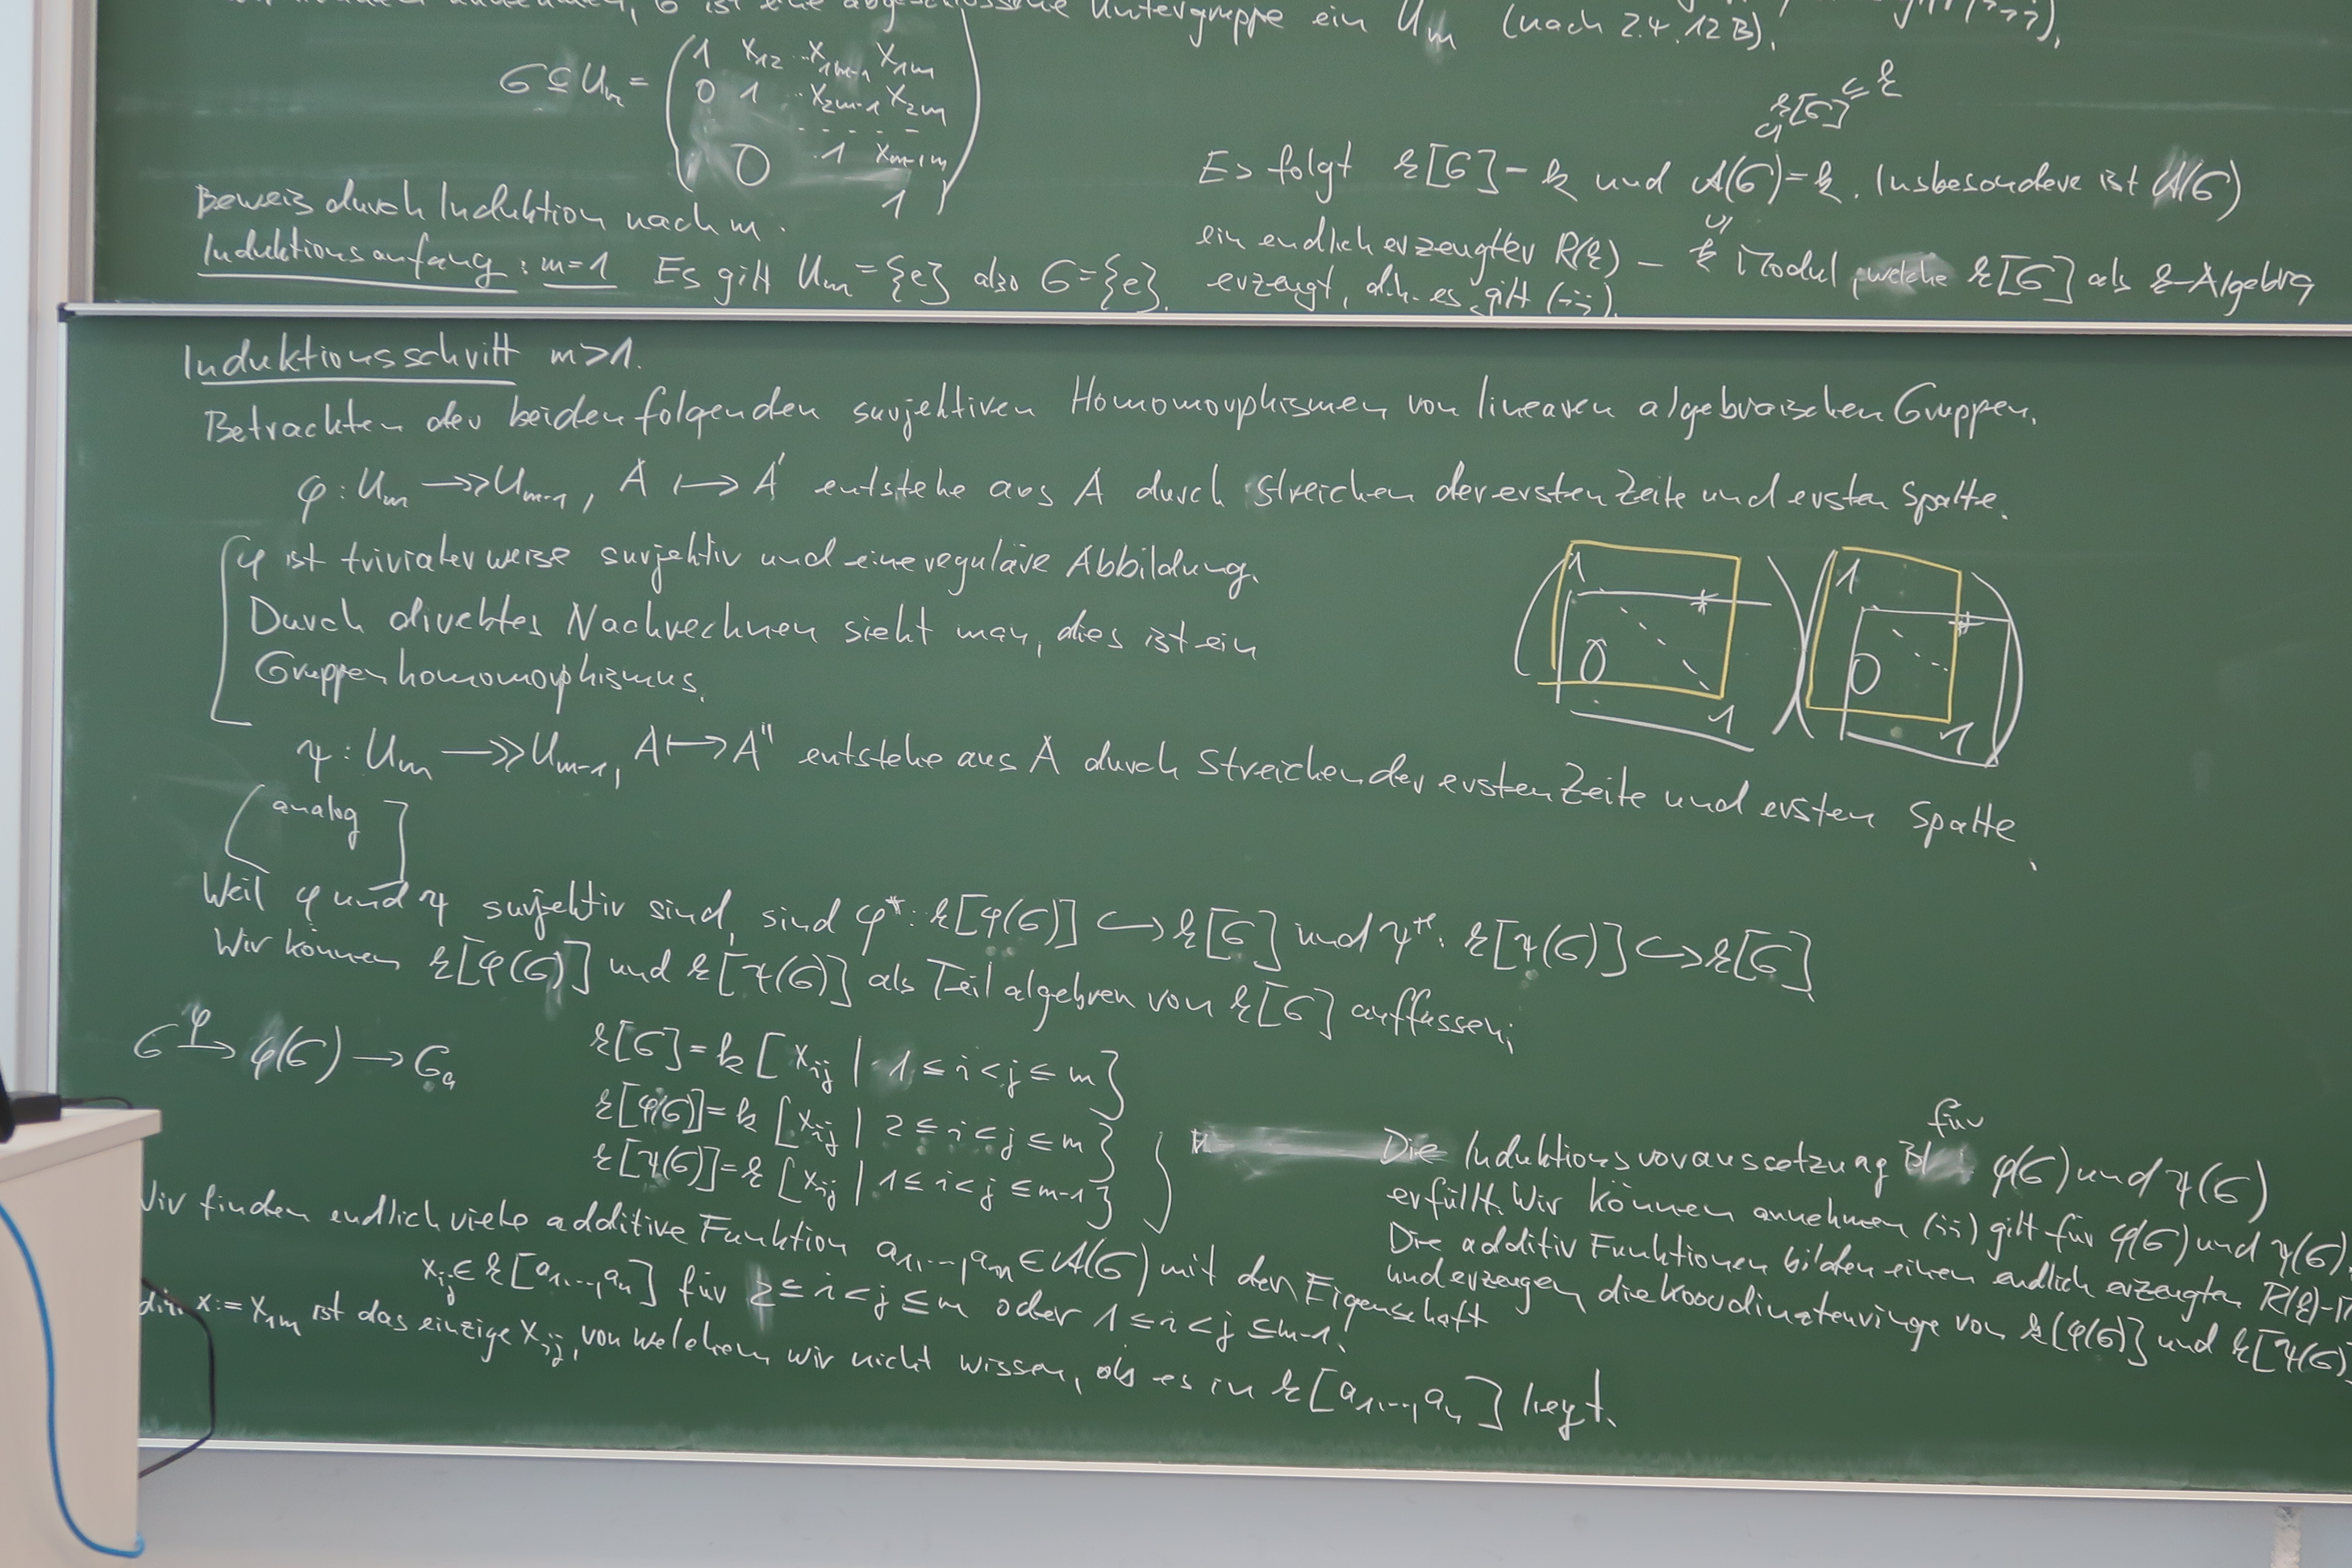 ist eine abgeschlossene Untergruppe ein Um (nach 2.4.12 B),
G ⊆ Um = ( 1 x12 ... x1m-1 x1m
0 1 ... x2m-1 x2m
. . . . . .
0 .1 xm-1m
1 )
Beweis durch Induktion nach m.
Induktionsanfang: m=1 Es gilt Um = {e} also G = {e}.
k[G] ⊆ k
Es folgt k[G] = k und A(G) = k. Insbesondere ist A(G)
ein endlich erzeugter R(k) - Modul, welche k[G] als k-Algebra
erzeugt, d.h. es gilt (ii).
Induktionsschritt m>1.
Betrachten der beiden folgenden surjektiven Homomorphismen von linearen algebraischen Gruppen.
φ: Um ↠ Um-1, A ↦ A' entstehe aus A durch Streichen der ersten Zeile und ersten Spalte.
[φ ist trivialerweise surjektiv und eine reguläre Abbildung.
Durch direktes Nachrechnen sieht man, dies ist ein
Gruppenhomomorphismus.
1 * 0 1
1 * 0 1
ψ: Um ↠ Um-1, A ↦ A'' entstehe aus A durch Streichen der ersten Zeile und ersten Spalte.
[analog]
Weil φ und ψ surjektiv sind, sind φ*: k[φ(G)] ↪ k[G] und ψ*: k[ψ(G)] ↪ k[G]
Wir können k[φ(G)] und k[ψ(G)] als Teilalgebren von k[G] auffassen;
G →φ φ(G) → Ga
k[G] = k[xij | 1 ≤ i < j ≤ m]
k[φ(G)] = k[xij | 2 ≤ i < j ≤ m]
k[ψ(G)] = k[xij | 1 ≤ i < j ≤ m-1]
Die Induktionsvoraussetzung ist für φ(G) und ψ(G)
erfüllt. Wir können annehmen (ii) gilt für φ(G) und ψ(G).
Die additiv Funktionen bilden einen endlich erzeugten R(k)-
und erzeugen die Koordinatenringe von k[φ(G)] und k[ψ(G)]
Wir finden endlich viele additive Funktion a1,...,an ∈ A(G) mit der Eigenschaft
xij ∈ k[a1,...,an] für 2 ≤ i < j ≤ m oder 1 ≤ i < j ≤ m-1.
d.h. x := x1m ist das einzige xij, von welchem wir nicht wissen, ob es in k[a1,...,an] liegt.